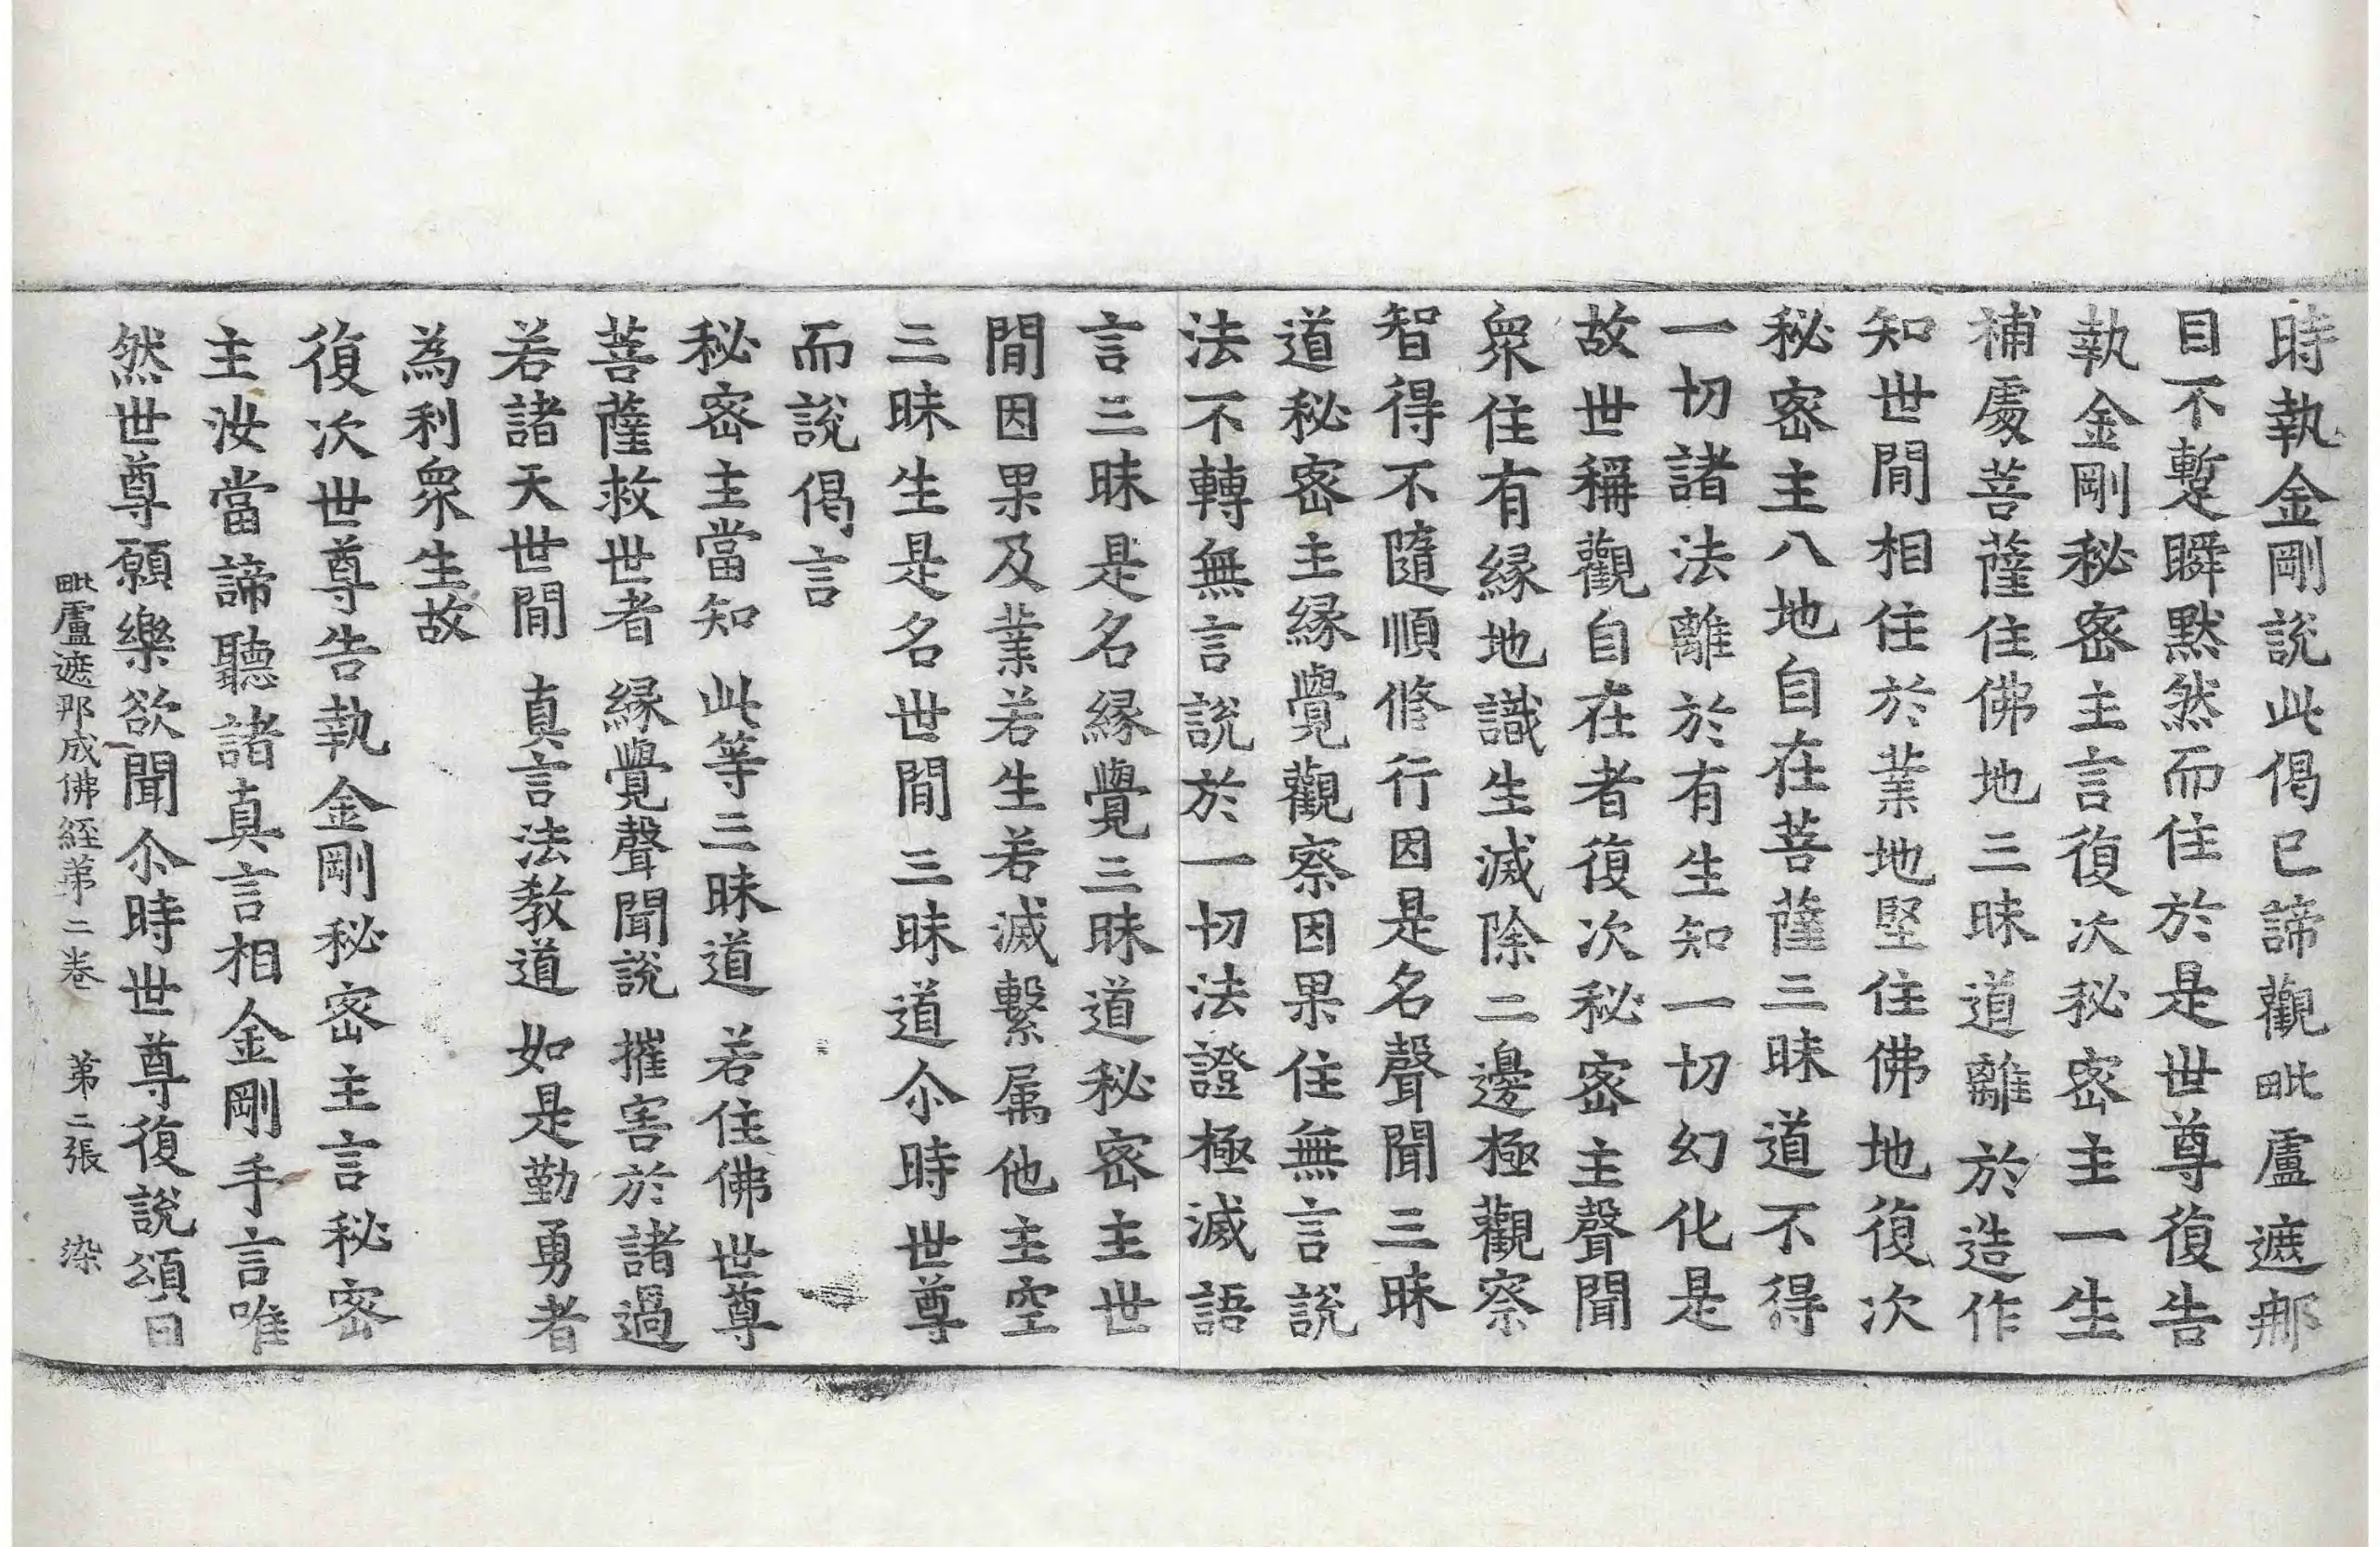 時執金剛說此偈已諦觀毗盧遮那
目不暫瞬默然而住於是世尊復告
執金剛秘密主言復次秘密主一生
補處菩薩住佛地三昧道離於造作
知世間相住於業地堅住佛地復次
秘密主八地自在菩薩三昧道不得
一切諸法離於有生知一切幻化是
故世稱觀自在者復次秘密主聲聞
衆住有緣地識生滅除二邊極觀察
智得不隨順修行因是名聲聞三昧
道秘密主緣覺觀察因果住無言說
法不轉無言說於一切法證極滅語
言三昧是名緣覺三昧道秘密主世
間因果及業若生若滅繫属他主空
三昧生是名世間三昧道尒時世尊
而說偈言
秘密主當知 此等三昧道 若住佛世尊
菩薩救世者 緣覺聲聞說 摧害於諸過
若諸天世間 真言法教道 如是勤勇者
為利衆生故
復次世尊告執金剛秘密主言秘密
主汝當諦聽諸真言相金剛手言唯
然世尊願樂欲聞尒時世尊復說頌曰
毗盧遮那成佛經第二卷 第二張 染